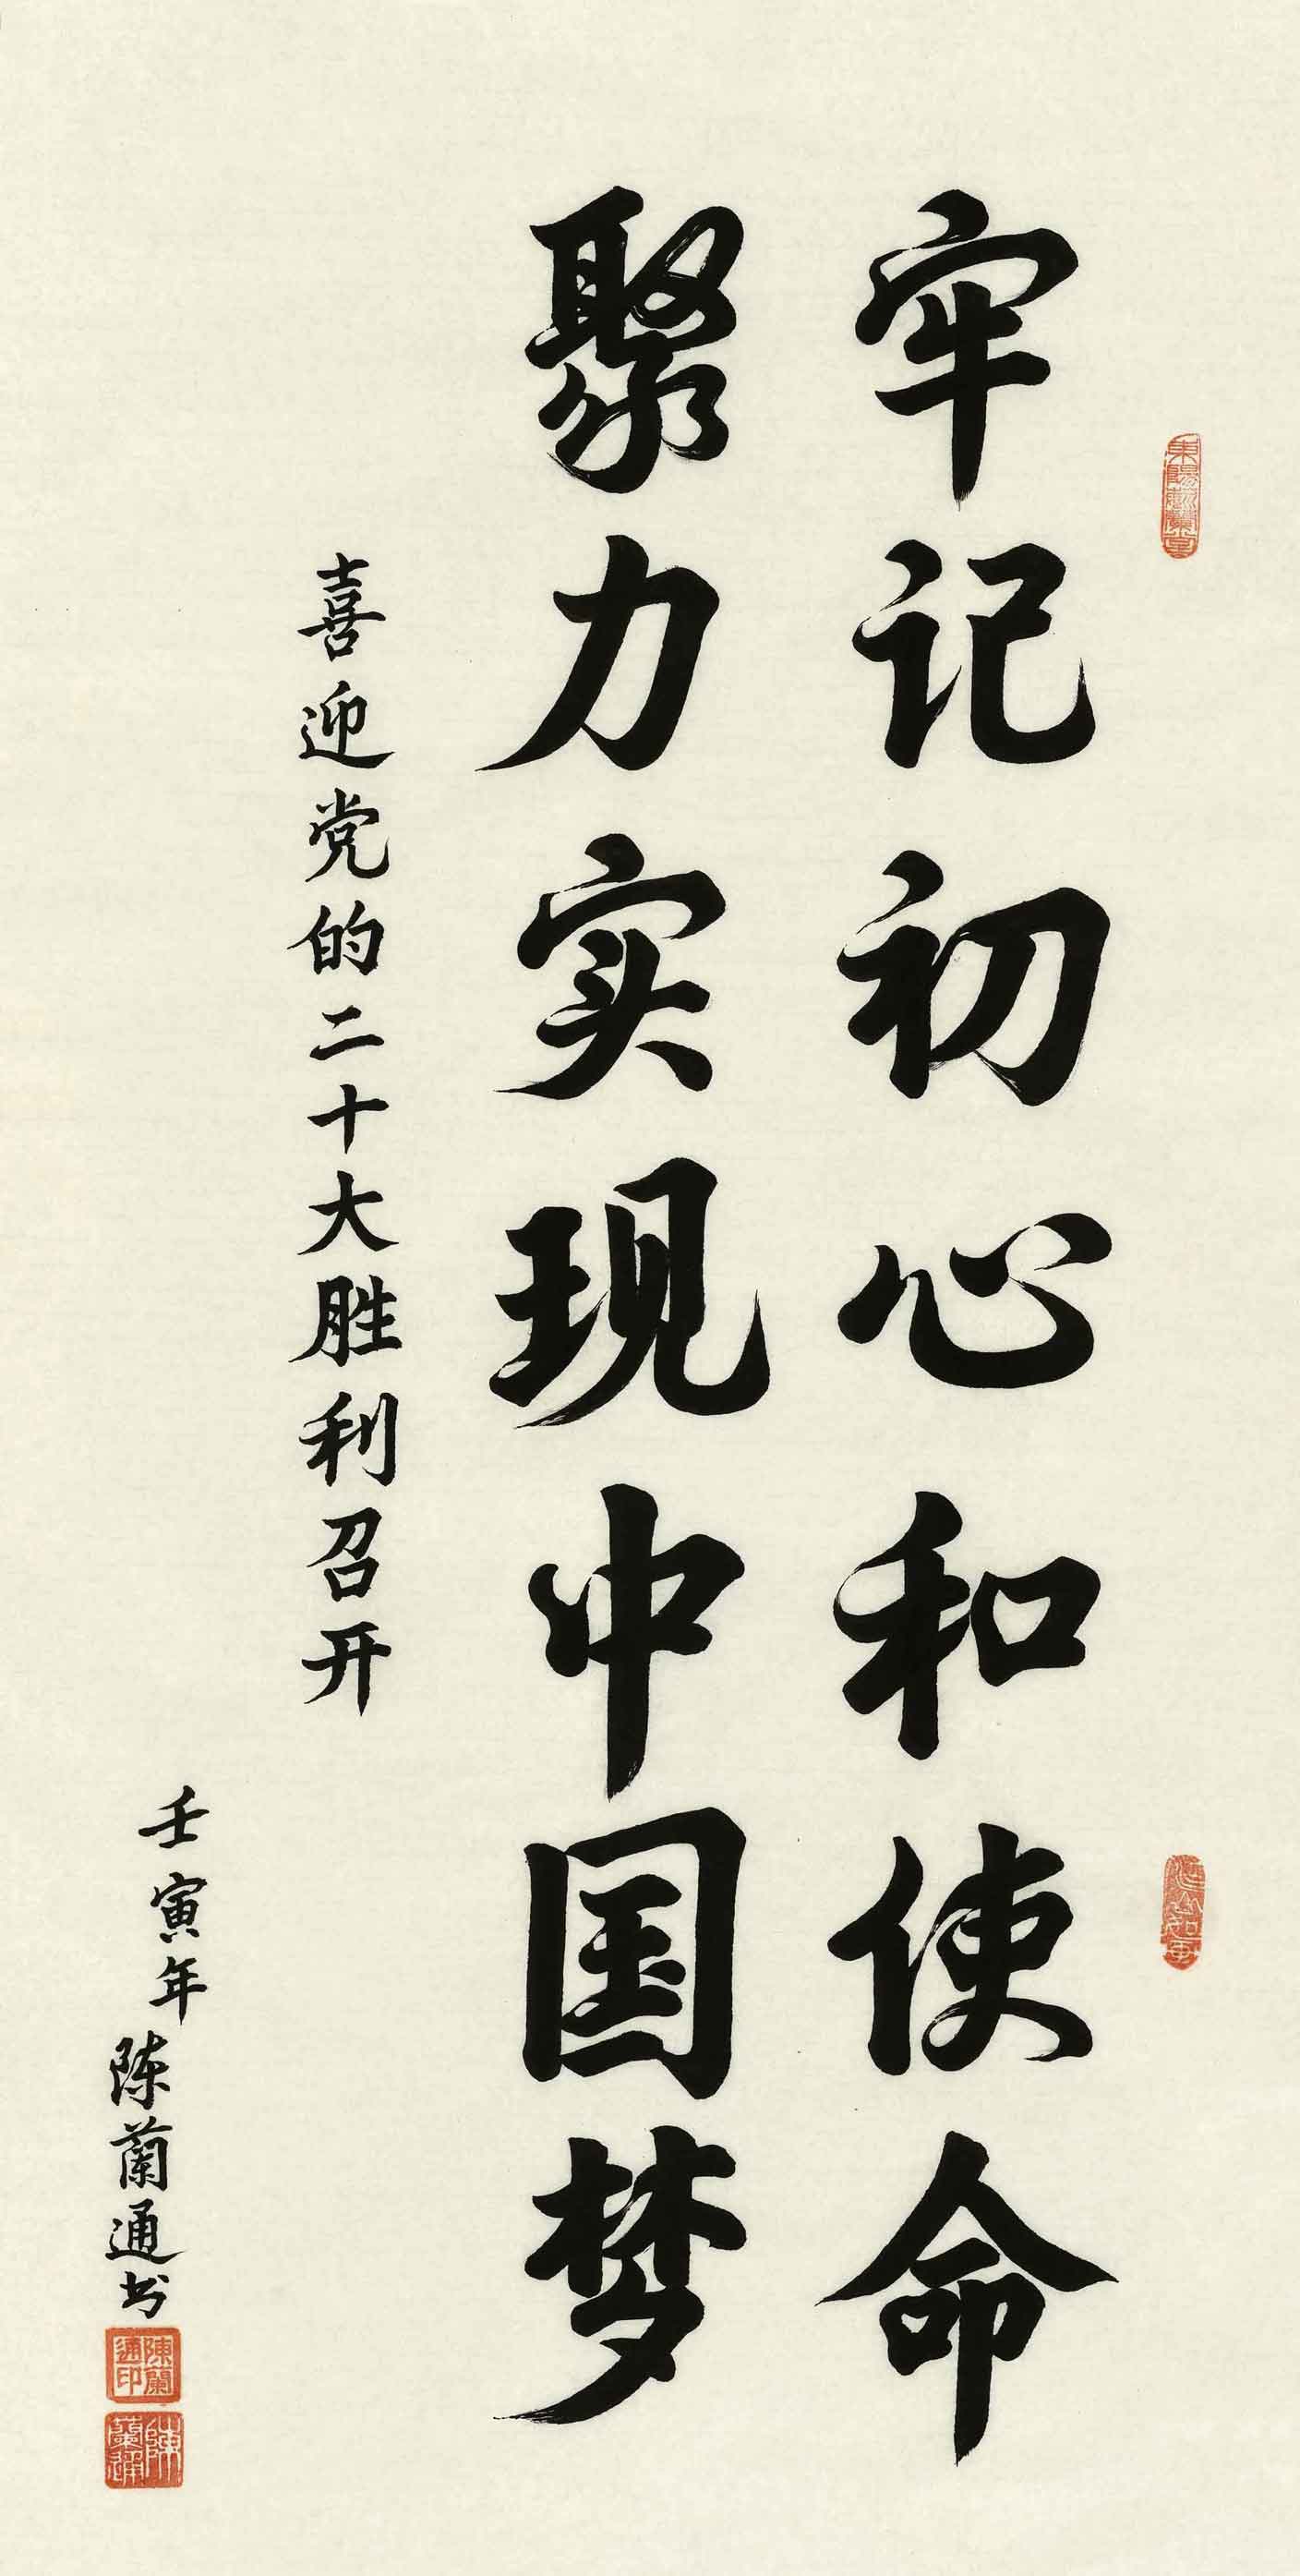 牢记初心和使命
聚力实现中国梦
喜迎党的二十大胜利召开
壬寅年
陈蘭通书
陳蘭通印
陳蘭通